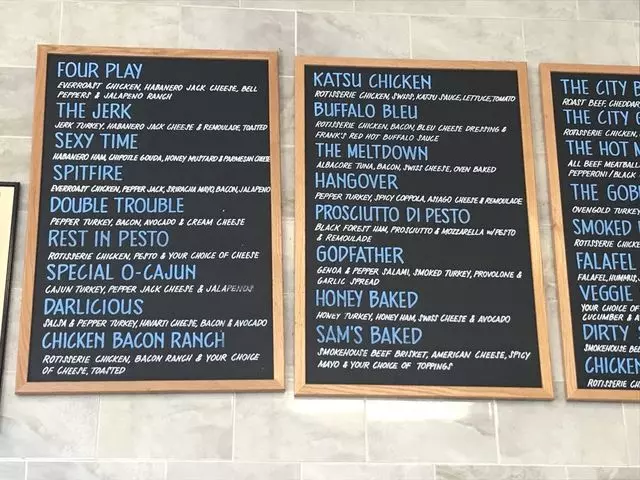 FOUR PLAY
EVERROAST CHICKEN, HABANERO JACK CHEESE, BELL
PEPPERS & JALAPENO RANCH
THE JERK
JERK TURKEY, HABANERO JACK CHEESE & REMOULADE, TOASTED
SEXY TIME
HABANERO HAM, CHIPOTLE GOUDA, HONEY MUSTARD & PARMESAN CHEESE
SPITFIRE
EVERROAST CHICKEN, PEPPER JACK, SRIRACHA MAYO, BACON, JALAPENO
DOUBLE TROUBLE
PEPPER TURKEY, BACON, AVOCADO & CREAM CHEESE
REST IN PESTO
ROTISSERIE CHICKEN, PESTO & YOUR CHOICE OF CHEESE
SPECIAL O-CAJUN
CAJUN TURKEY, PEPPER JACK CHEESE & JALAPENOS
DARLICIOUS
SALSA & PEPPER TURKEY, HAVARTI CHEESE, BACON & AVOCADO
CHICKEN BACON RANCH
ROTISSERIE CHICKEN, BACON RANCH & YOUR CHOICE
OF CHEESE, TOASTED
KATSU CHICKEN
ROTISSERIE CHICKEN, SWISS, KATSU SAUCE, LETTUCE, TOMATO
BUFFALO BLEU
ROTISSERIE CHICKEN, BACON, BLEU CHEESE DRESSING &
FRANK'S RED HOT BUFFALO SAUCE
THE MELTDOWN
ALBACORE TUNA, BACON, SWISS CHEESE, OVEN BAKED
HANGOVER
PEPPER TURKEY, SPICY COPPOLA, ASIAGO CHEESE & REMOULADE
PROSCIUTTO DI PESTO
BLACK FOREST HAM, PROSCIUTTO & MOZZARELLA W/PESTO
& REMOULADE
GODFATHER
GENOA & PEPPER SALAMI, SMOKED TURKEY, PROVOLONE &
GARLIC SPREAD
HONEY BAKED
HONEY TURKEY, HONEY HAM, SWISS CHEESE & AVOCADO
SAM'S BAKED
SMOKEHOUSE BEEF BRISKET, AMERICAN CHEESE, SPICY
MAYO & YOUR CHOICE OF TOPPINGS
THE CITY
ROAST BEEF, CHEDDAR
THE CITY
ROTISSERIE CHICKEN
THE HOT
ALL BEEF MEATBALL
PEPPERONI / BLACK
THE
OVENGOLD TURKEY
SMOKED
ROTISSERIE
FALAFEL
FALAFEL, HUMMUS,
VEGGIE
YOUR CHOICE OF
CUCUMBER &
DIRTY
SMOKEHOUSE
CHICKEN
ROTISSERIE